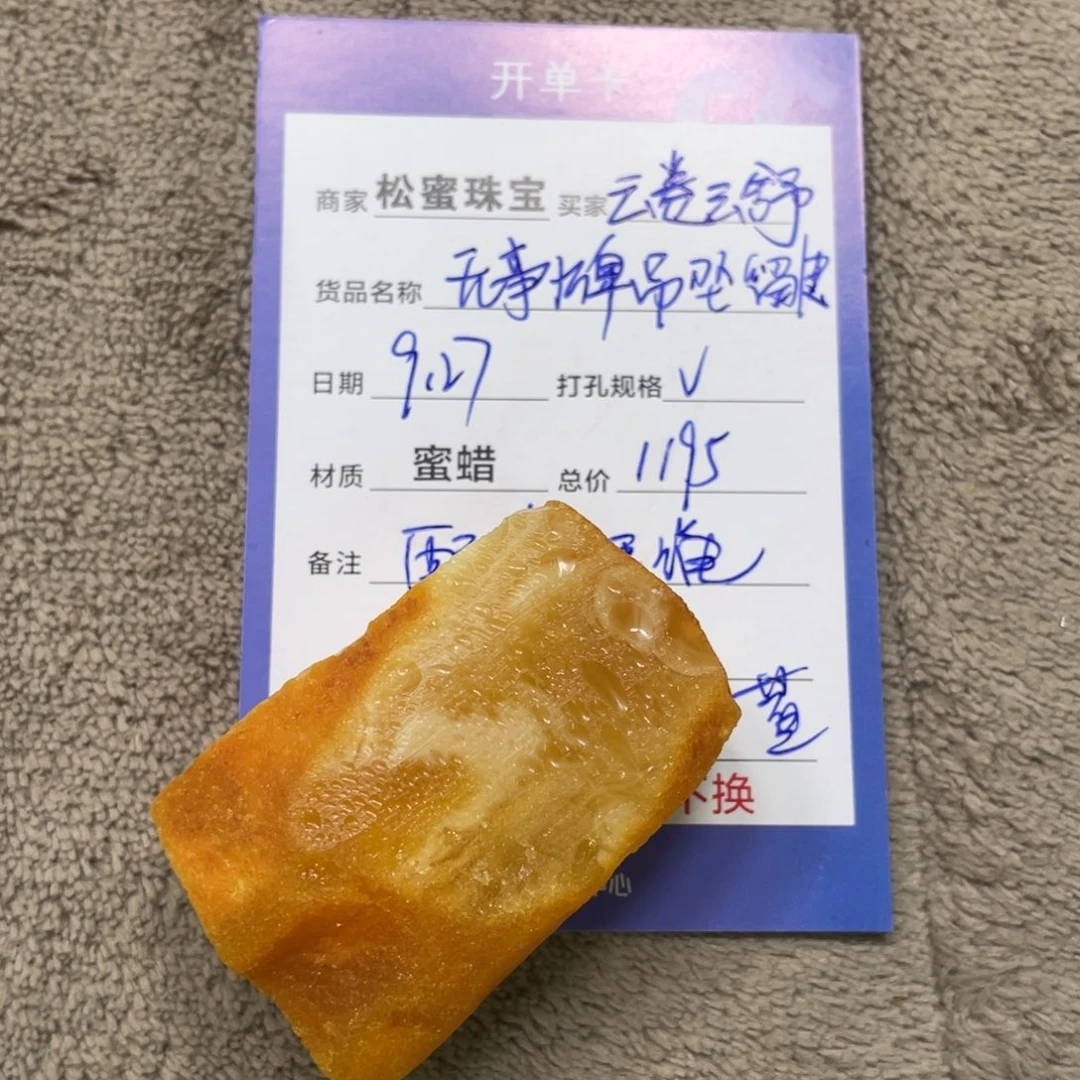 开单卡
商家 松蜜珠宝 买家 云卷云舒
货品名称 无事牌吊坠 留皮
日期 9.27 打孔规格 V
材质 蜜蜡 总价 1195
备注 配 绳
不换
心